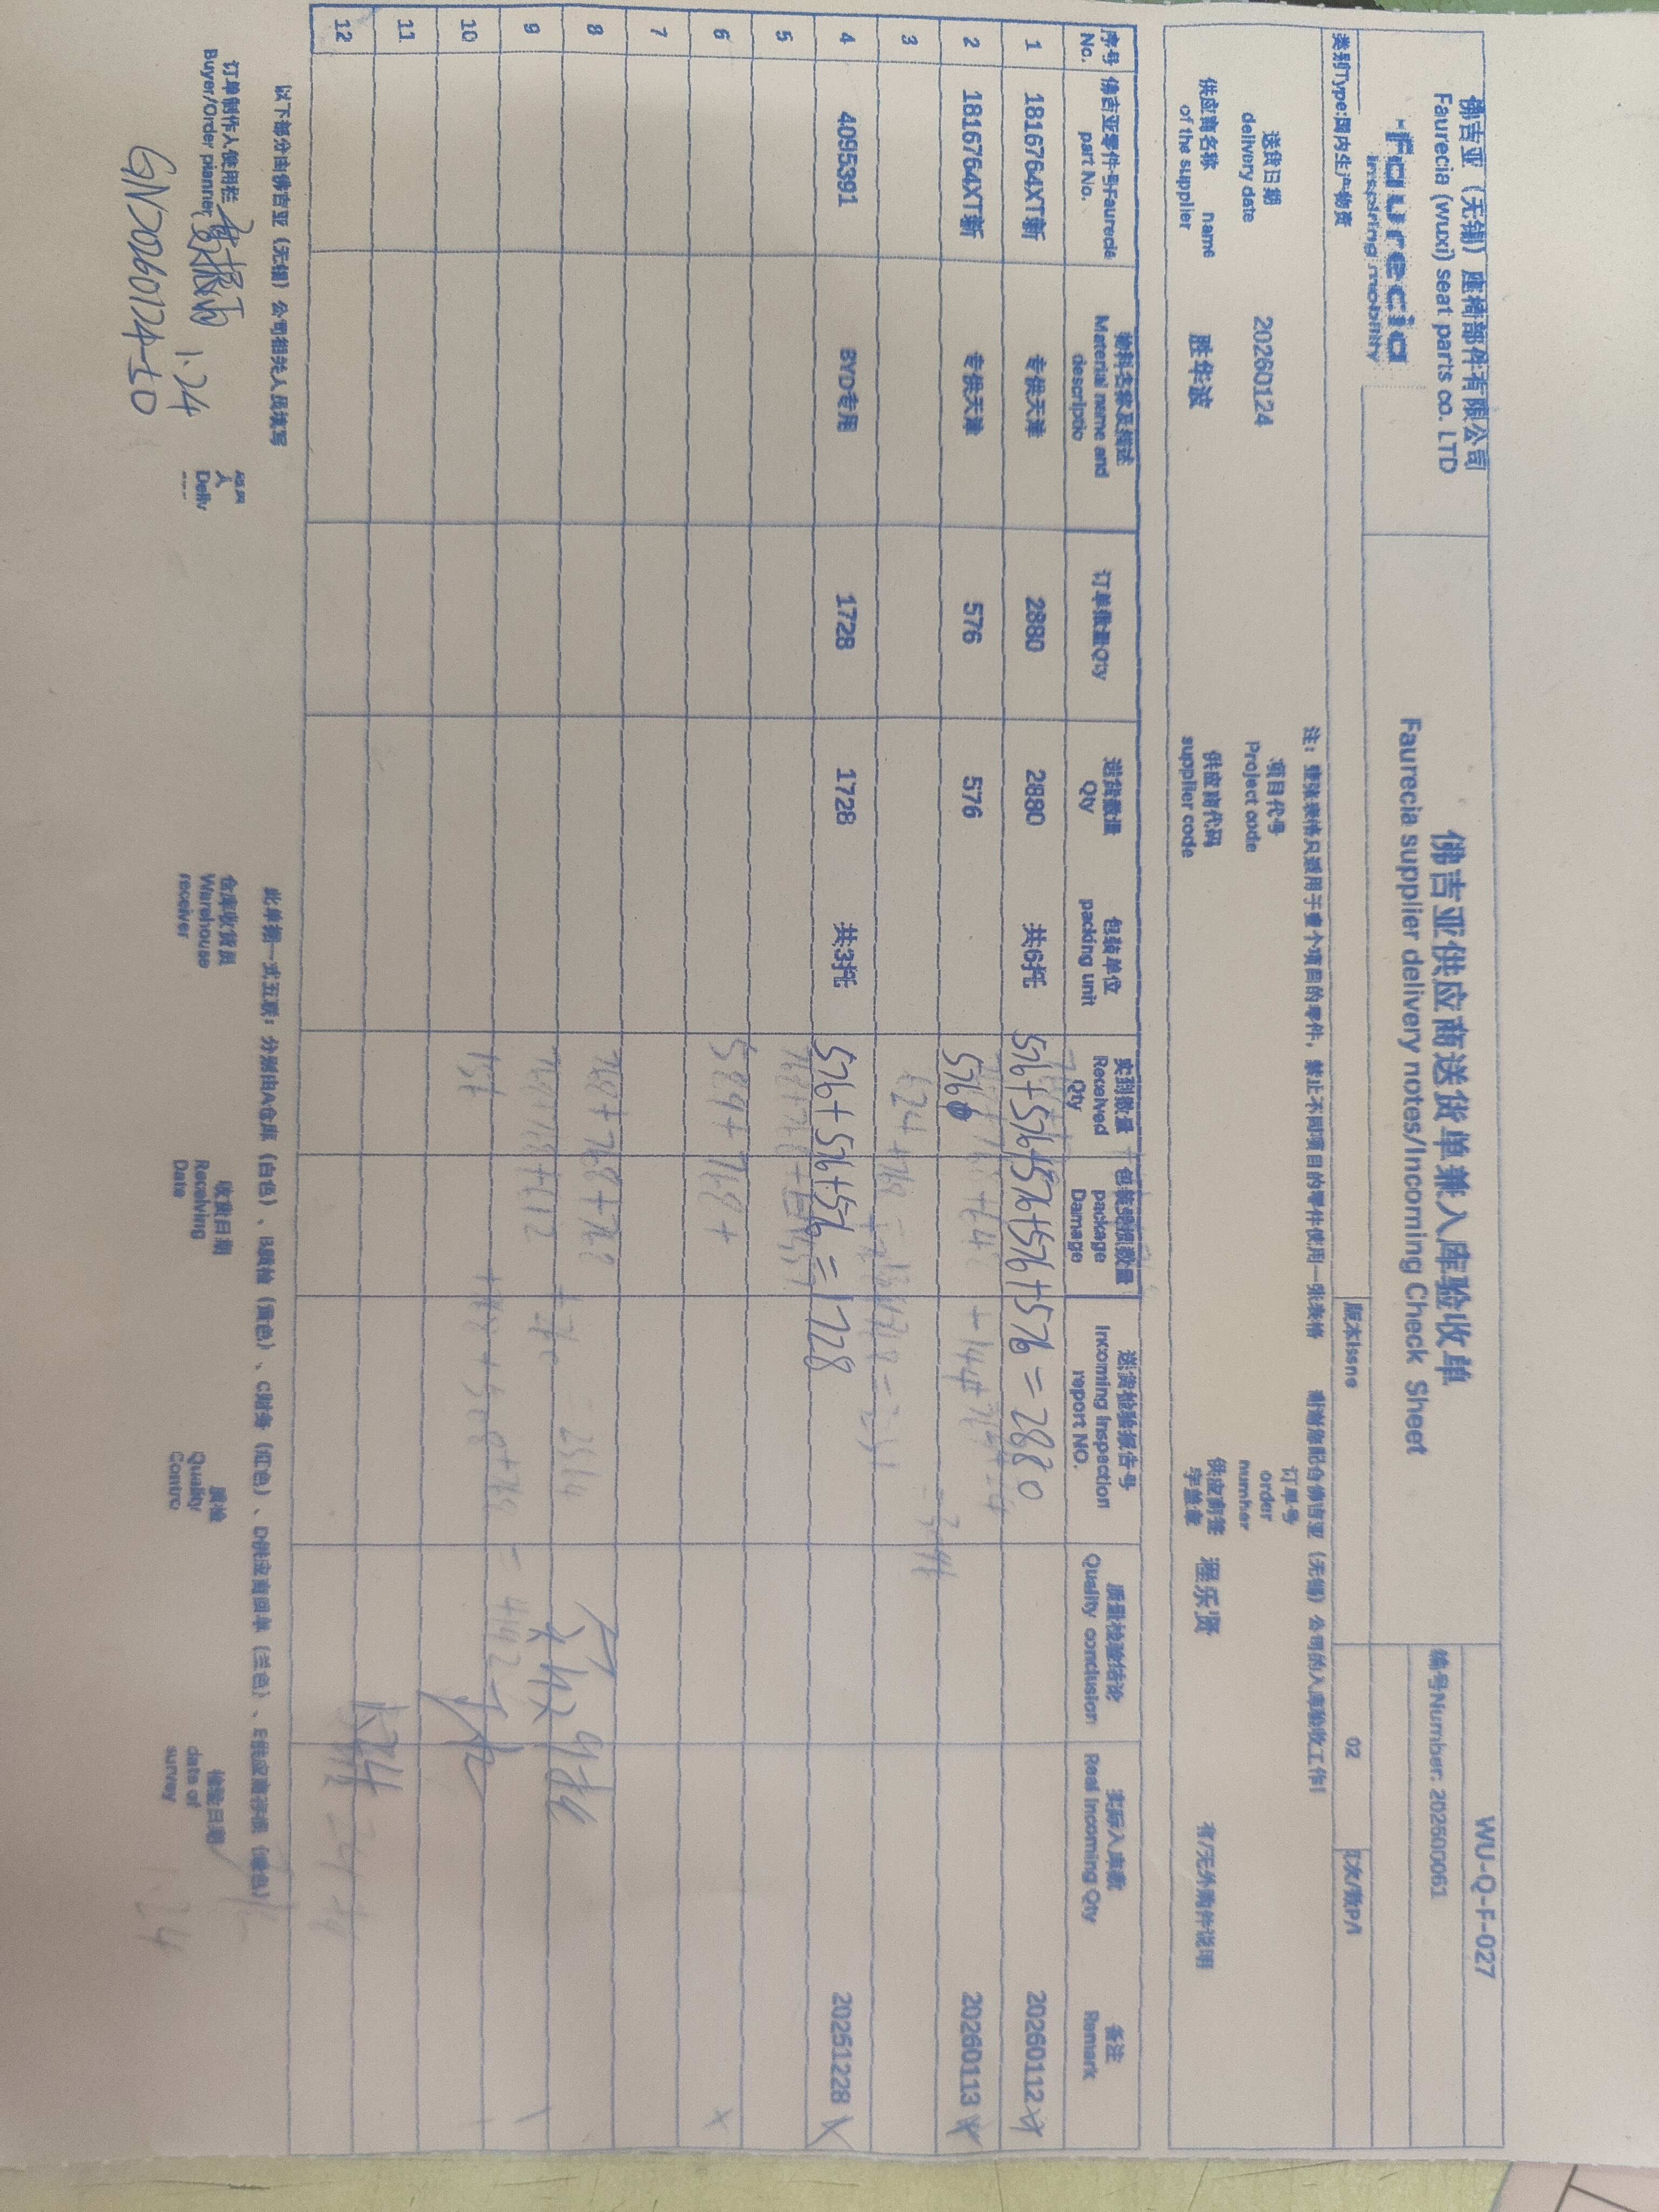 佛吉亚（无锡）座椅部件有限公司
Faurecia (wuxi) Seat parts co. LTD
faurecia
inspiring mobility
佛吉亚供应商送货单兼入库验收单
Faurecia supplier delivery notes/Incoming Check Sheet
WU-Q-F-027
编号Number: 202600061
类别Type:国内生产物资
版本Issne 02
页次/数P/1
注：整张表格只适用于壹个项目的零件，禁止不同项目的零件使用一张表格 谢谢您配合佛吉亚（无锡）公司的入库验收工作！
送货日期 delivery date 20260124
项目代号 Project code
订单号 order number
供应商名称 name of the supplier 胜华波
供应商代码 supplier code
供应商签字盖章 程乐贤
有/无外购件说明
序号 No. 佛吉亚零件号Faurecia part No. 物料名称及描述 Material name and descriptio 订单数量Qty 送货数量 Qty 包装单位 packing unit 实到数量 Received Qty 包装受损数量 package Damage 送货检验报告号 Incoming Inspection report NO. 质量检验结论 Quality conclusion 实际入库数 Real Incoming Qty 备注 Remark
1 1816764XT新 专供天津 2880 2880 共6托 576+576+576+576+576=2880 20260112
2 1816764XT新 专供天津 576 576 576 20260113
3
4 4095391 BYD专用 1728 1728 共3托 576+576+576=1728 20251228
5
6
7
8
9
10
11
12
以下部分由佛吉亚（无锡）公司相关人员填写
此单据一式五联：分别由A仓库（白色）、B质检（黄色）、C财务（红色）、D供应商回单（兰色）、E供应商存根（绿色）
订单制作人使用栏 Buyer/Order planner
1.24
GN20260124-50
人 Deliv
仓库收货员 Warehouse receiver
收货日期 Receiving Date
质检 Quality Contro
检验日期 date of survey
1.24